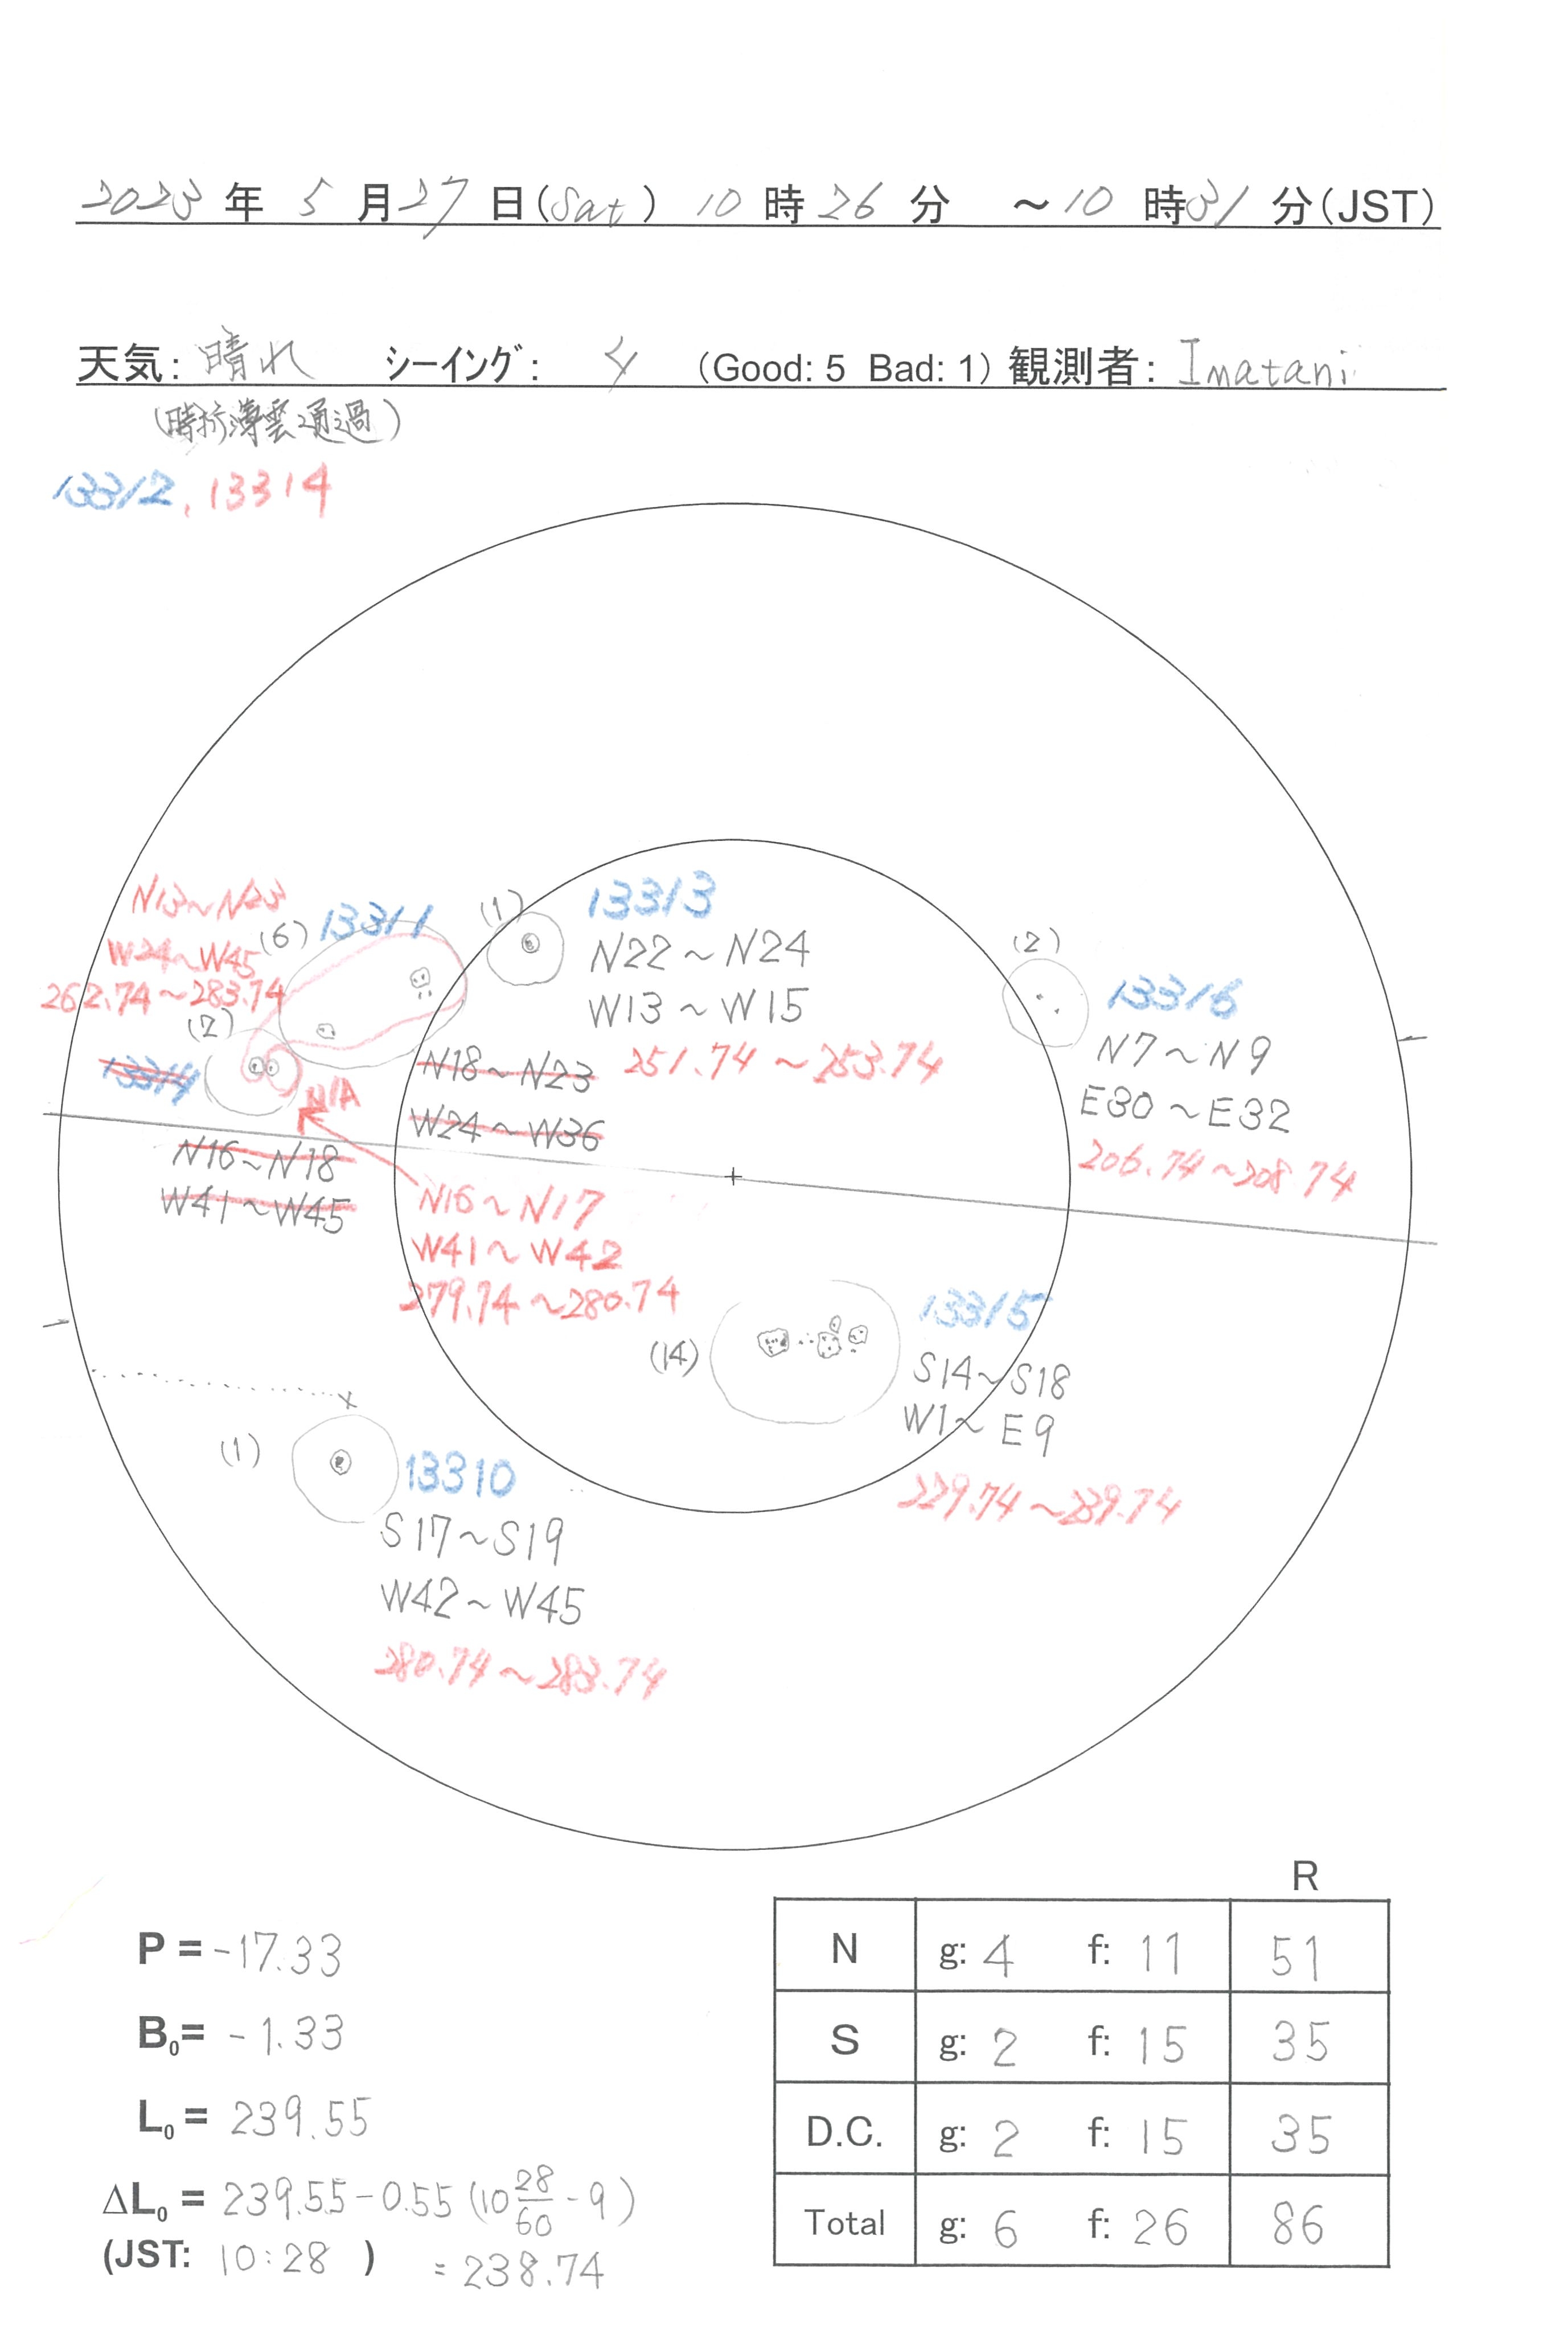 2023 年 5 月 27 日(Sat) 10 時 26 分 ~10 時 31 分(JST)
天気: 晴れ シーイング: 4 (Good: 5 Bad: 1) 観測者: Imatani
(時折薄雲通過)
13312, 13314
N13~N23
W24~W45
262.74~283.74
(6) 13311
(1)
13313
N22~N24
W13~W15
251.74~253.74
(2)
13316
N7~N9
E30~E32
206.74~208.74
13314
N/A
N18~N23
W24~W36
N16~N18
W41~W45
N16~N17
W41~W42
279.74~280.74
(14)
13315
S14~S18
W1~E9
229.74~239.74
(1)
13310
S17~S19
W42~W45
280.74~283.74
P = -17.33
B₀= -1.33
L₀= 239.55
ΔL₀ = 239.55-0.55(10 28/60 -9)
(JST: 10:28 ) = 238.74
R
N g: 4 f: 11 51
S g: 2 f: 15 35
D.C. g: 2 f: 15 35
Total g: 6 f: 26 86